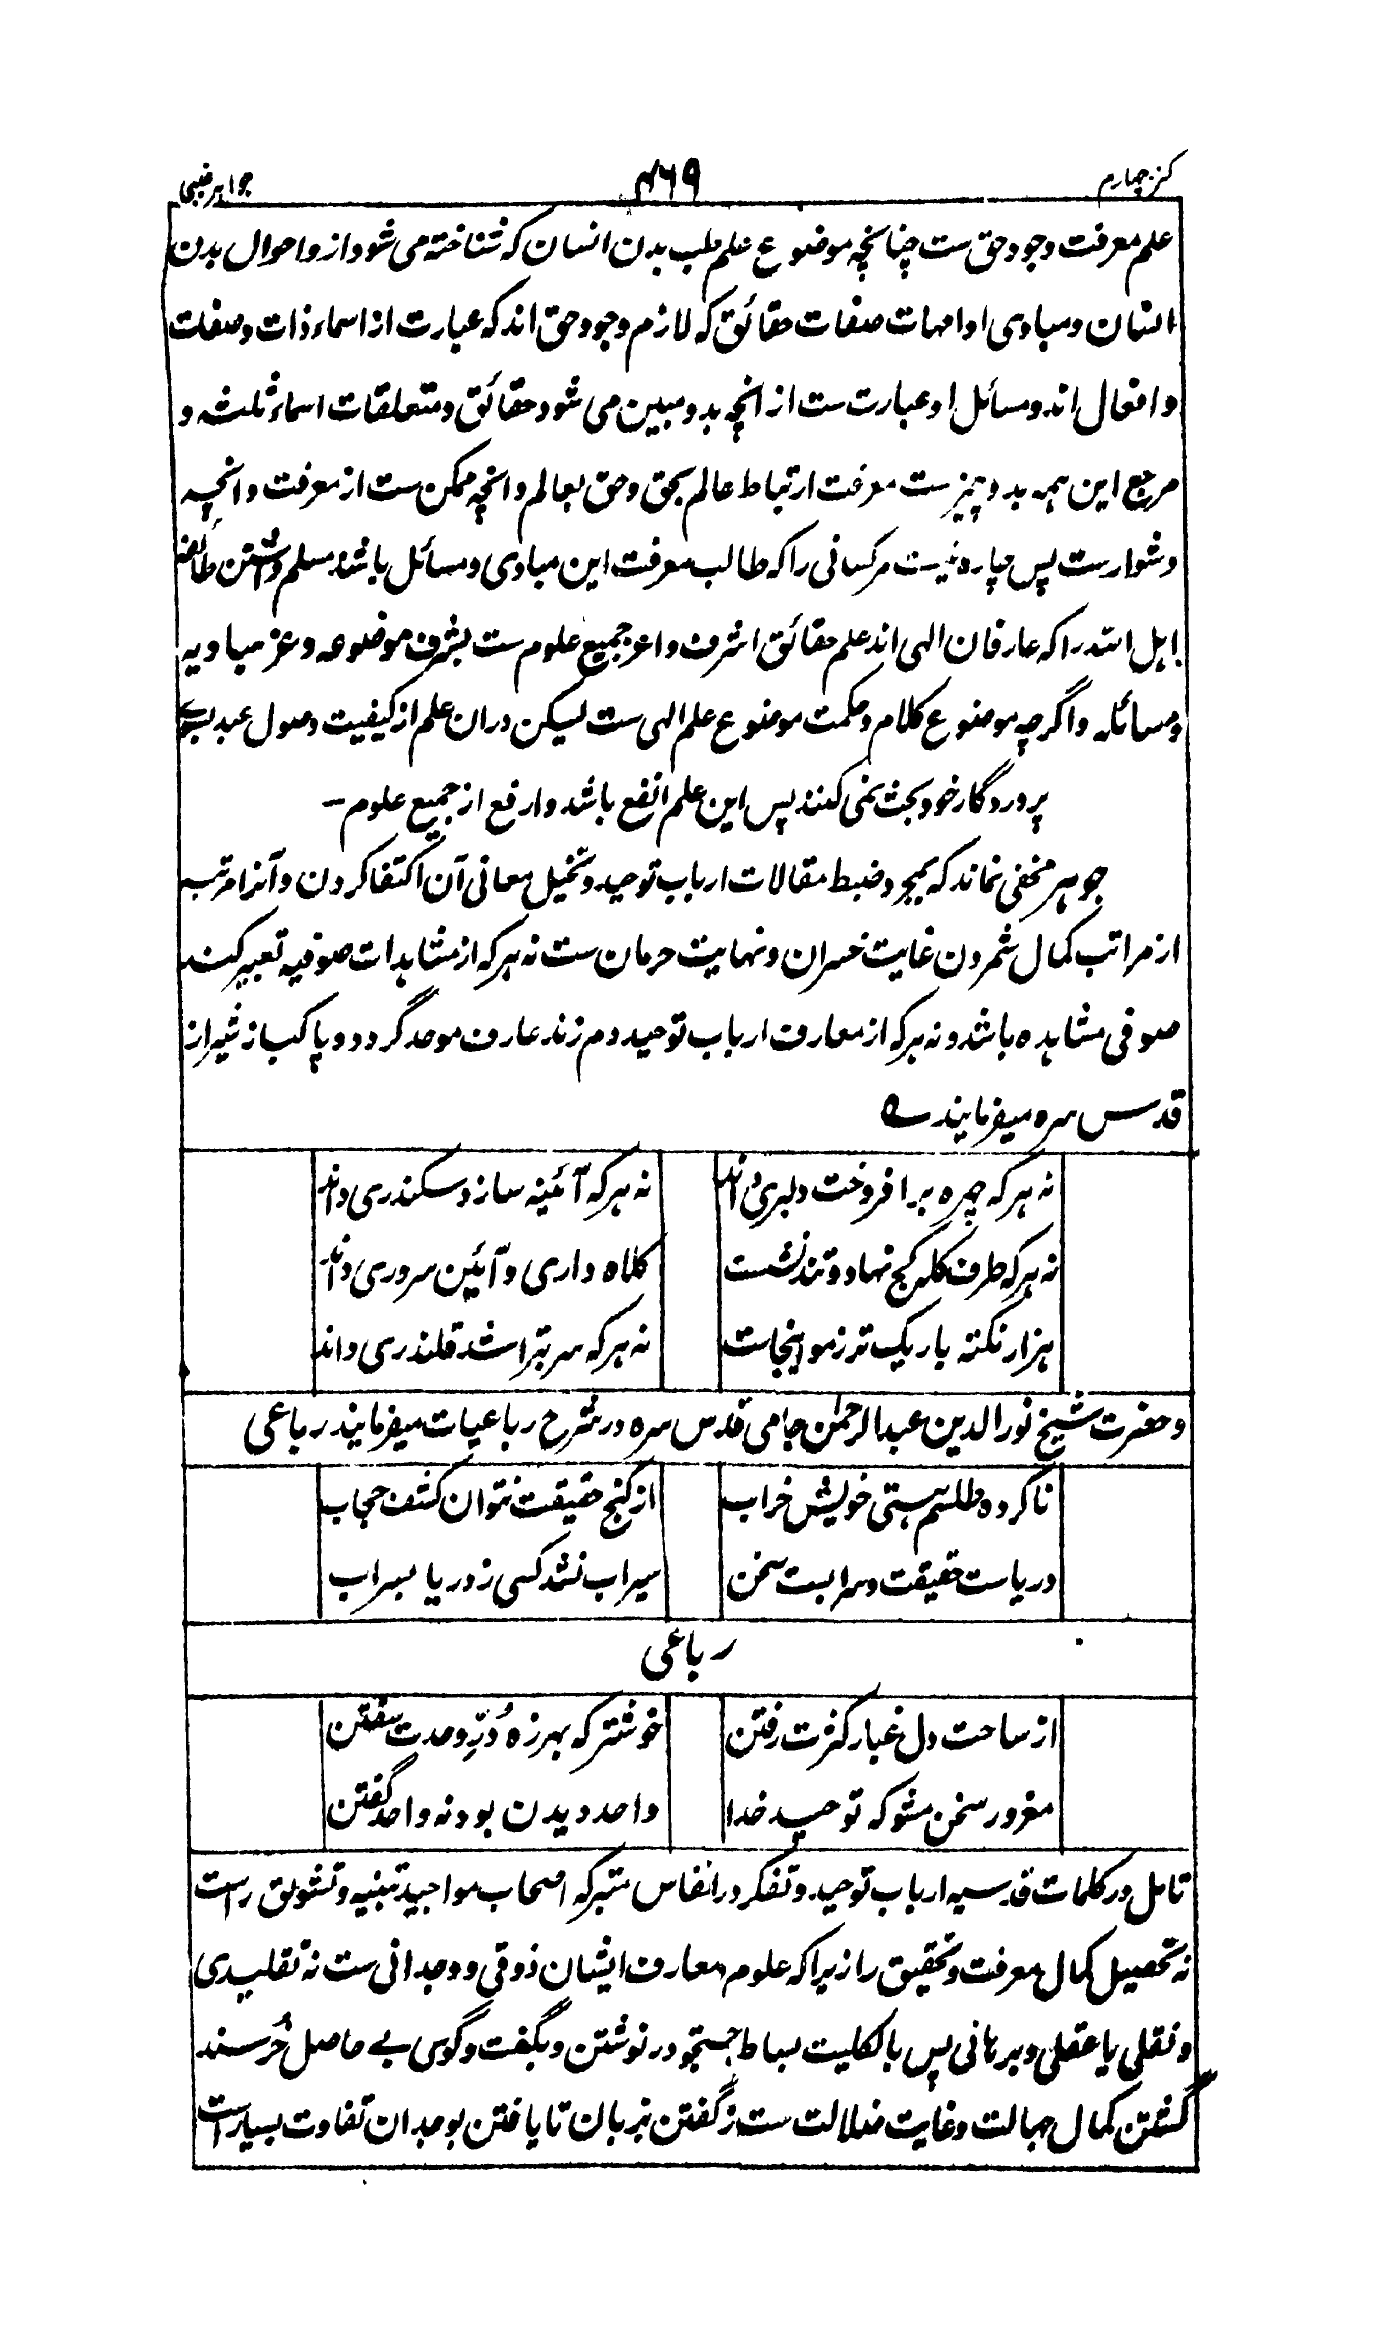 کنز چهارم ۴۶۹ جواہر غیبی
علم معرفت وجود حق ست چنانچه موضوع علم طب بدن انسان که شناخته می شود از و احوال بدن
انسان و مبادی او امهات صفات حقائق که لازم وجود حق اند که عبارت از اسماء ذات و صفات
و افعال اند و مسائل او عبارت ست از انچه بدو مبین می شود حقائق و متعلقات اسماء ثلثه و
مرجع این همه بدو چیز ست معرفت ارتباط عالم بحق و حق بعالم و انچه ممکن ست از معرفت و انچه
دشوارست پس چاره نیست مر کسانی را که طالب معرفت این مبادی و مسائل باشند مسلم داشتن طائفه
اہل اللہ را که عارفان الهی اند علم حقائق اشرف و اعز جمیع علوم ست بشرف موضوعه و عز مبادیه
و مسائله و اگرچه موضوع کلام و حکمت موضوع علم الهی ست لیکن دران علم از کیفیت وصول عبد بسوے
پروردگار خود بحث نمی کنند پس این علم انفع باشد و ارفع از جمیع علوم –
جوہر مخفی نماند که بمجرد ضبط مقالات ارباب توحید و تخیل معانی آن اکتفا کردن و آنرا مرتبہ
از مراتب کمال شمردن غایت خسران و نهایت حرمان ست نه هر که از مشاہدات صوفیه تعبیر کند
صوفی مشاہدہ باشد و نه هر که از معارف ارباب توحید دم زند عارف موحد گردد و پاکباز شیراز
قدس سره میفرمایند ے
نه هر که چهره برافروخت دلبری داند نه هر که آئینه سازد سکندری داند
نه هر که طرف کله کج نهاد و تند نشست کلاه داری و آئین سروری داند
هزار نکته باریک تر ز مو اینجاست نه هر که سر بتراشد قلندری داند
و حضرت شیخ نورالدین عبدالرحمٰن جامی قدس سره در شرح رباعیات میفرمایند رباعی
ناکرده طلسم ہستی خویش خراب از گنج حقیقت نتوان کشف حجاب
دریاست حقیقت و سرابست سخن سیراب نشد کسی ز دریا بسراب
رباعی
از ساحت دل غبار کثرت رفتن خوشتر که بهرزه دُرِّ وحدت سفتن
مغرور سخن مشو که توحید خدا واحد دیدن بود نه واحد گفتن
تامل در کلمات قدسیه ارباب توحید و تفکر در انفاس متبرکه اصحاب مواجید تنبیه و تشویق راست
نه تحصیل کمال معرفت و تحقیق را زیرا که علوم و معارف ایشان ذوقی و وجدانی ست نه تقلیدی
و نقلی یا عقلی و برهانی پس بالکلیت بساط جستجو در نوشتن و بگفت و گوی بے حاصل خُرسند
گشتن کمال جهالت و غایت ضلالت ست ز گفتن بزبان تا یافتن بوجدان تفاوت بسیارست